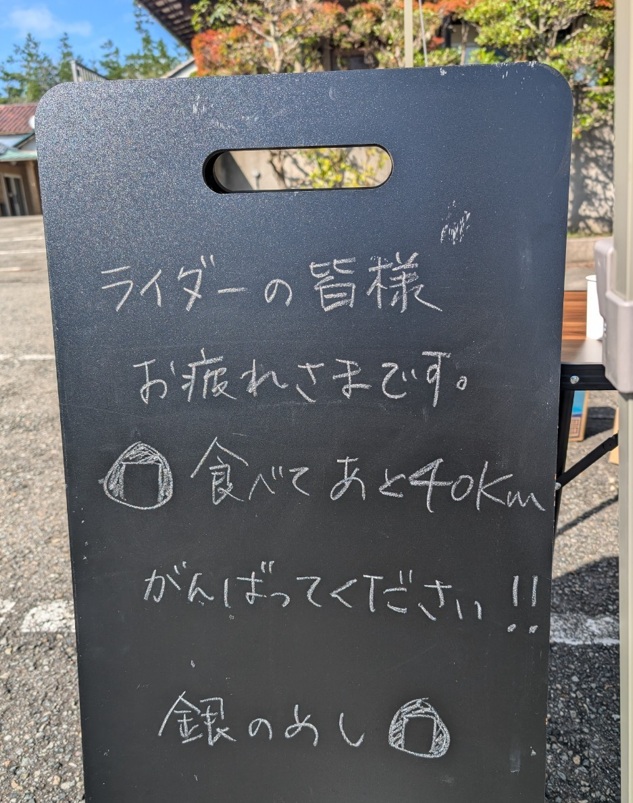 ライダーの皆様
お疲れさまです。
🍙食べてあと40Km
がんばってください!!
銀のめし🍙